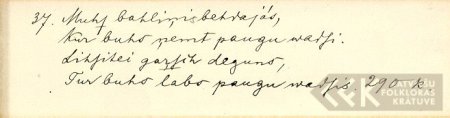 37. Muhſ bahliņis behdajās,
Kur buhs ņemt paugu wadſi.
Lihſitei garſch deguns,
Tur buhs labo paugu wadſis. 290 k
LATVIEŠU
FOLKLORAS
KRĀTUVE